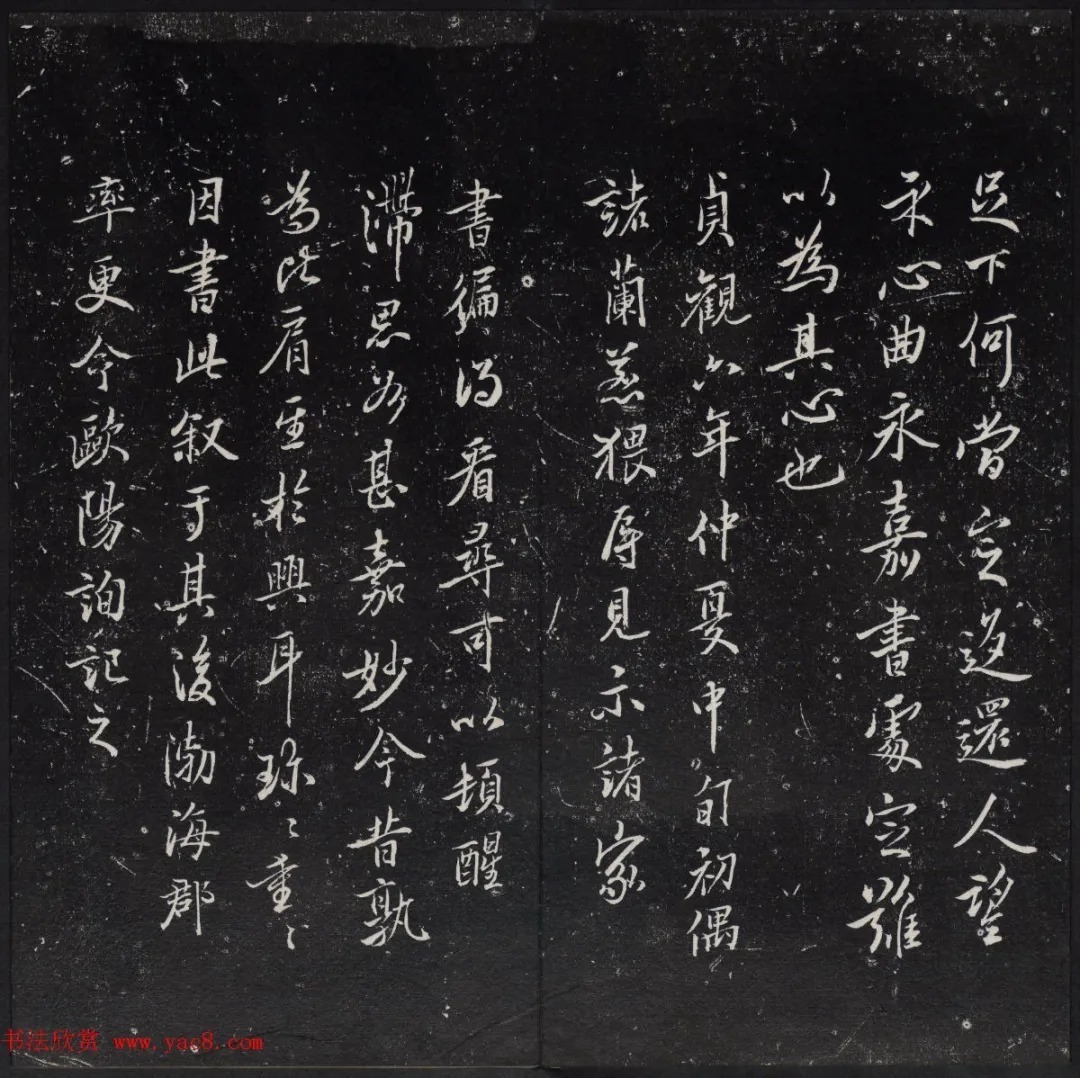 足下何當定還人望
永心曲永嘉書處定難
以為其心也
貞觀六年仲夏中旬初偶
諸蘭若猥辱見示諸家
書徧得看尋可以頓醒
滯思必甚嘉妙今昔孰
為比肩至於興耳珍〻重〻
因書此叙于其後渤海郡
率更令歐陽詢記之
书法欣赏 www.yac8.com